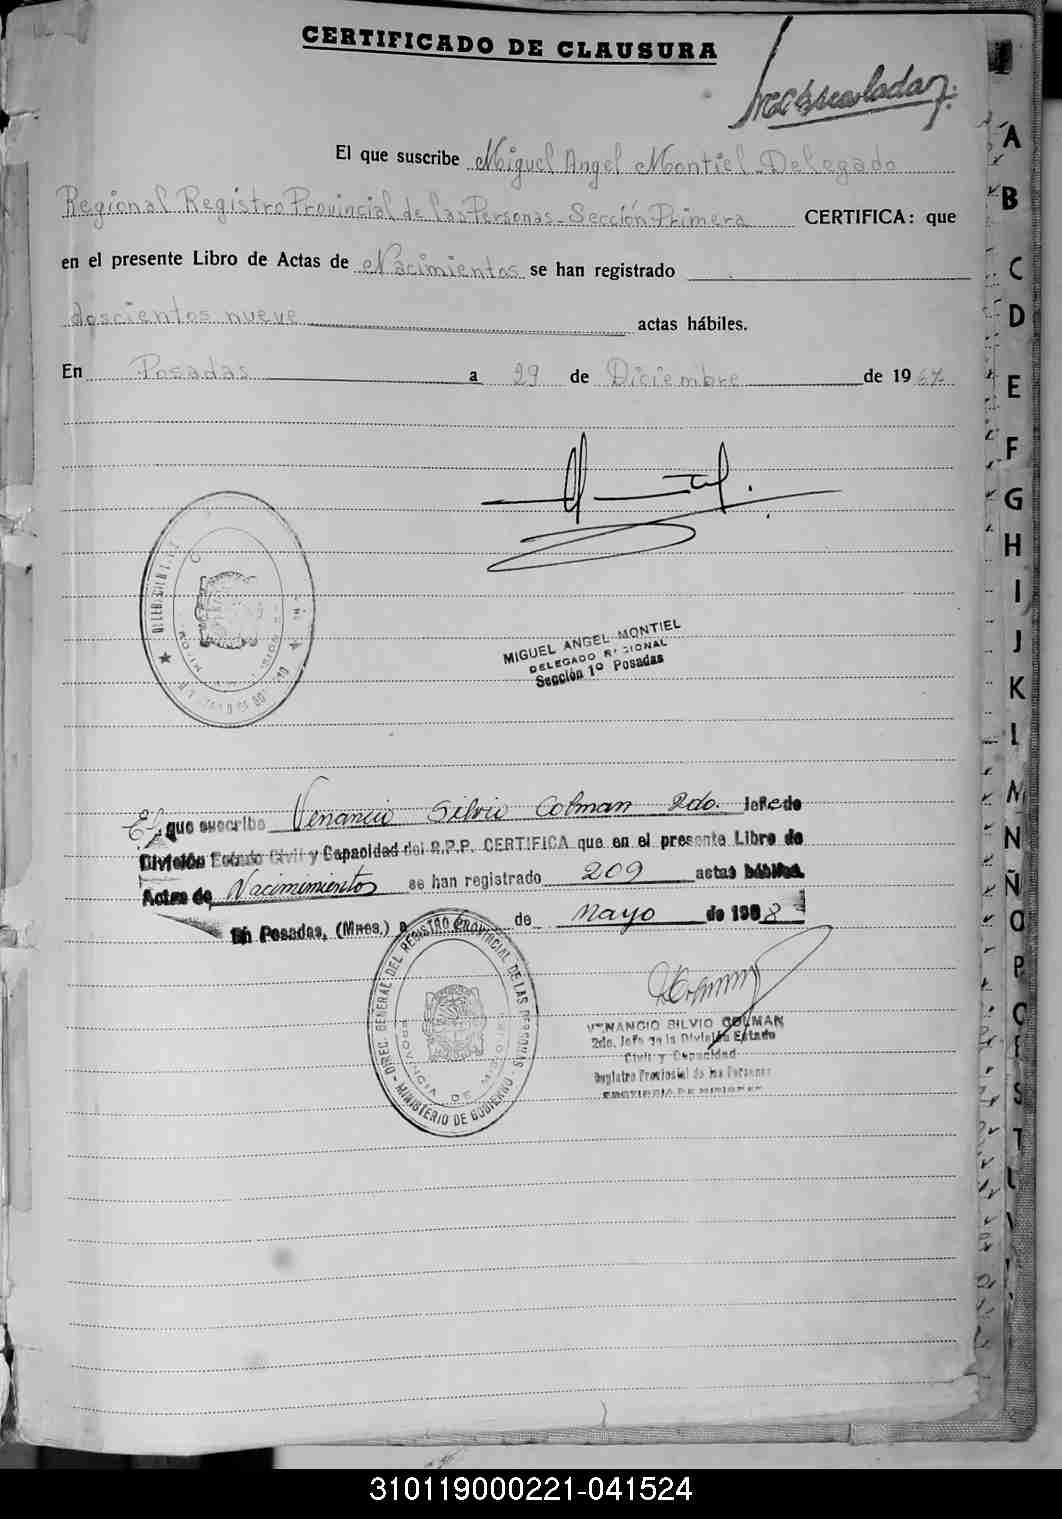 CERTIFICADO DE CLAUSURA
El que suscribe Miguel Angel Montiel Delegado
Regional Registro Provincial de las Personas - Sección Primera CERTIFICA: que
en el presente Libro de Actas de Nacimientos se han registrado
doscientos nueve actas hábiles.
En Posadas a 29 de Diciembre de 1967
MIGUEL ANGEL MONTIEL
DELEGADO REGIONAL
Sección 1º Posadas
El que suscribe Venancio Silvio Colman 2do. Jefe de
División Estado Civil y Capacidad del R.P.P. CERTIFICA que en el presente Libro de
Actas de Nacimimientos se han registrado 209 actas hábiles.
En Posadas, (Mnes.) a de Mayo de 1968
DIREC. GENERAL DEL REGISTRO PROVINCIAL DE LAS PERSONAS - MINISTERIO DE GOBIERNO
PROVINCIA DE MISIONES
VENANCIO SILVIO COLMAN
2do. Jefe de la División Estado
Civil y Capacidad
Registro Provincial de las Personas
PROVINCIA DE MISIONES
A
B
C
D
E
F
G
H
I
J
K
L
M
N
Ñ
O
P
Q
R
S
T
310119000221-041524